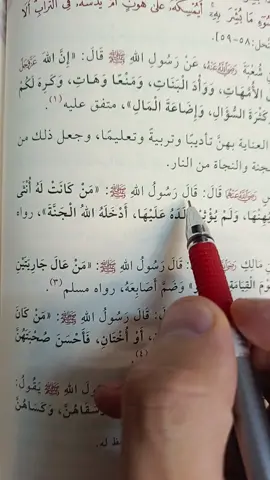 بِهِ أَيُمْسِكُهُ عَلَى هُونٍ أَمْ يَدُسُّهُ فِي التُّرَابِ أَلَا
شُعْبَةَ رضي الله عنه عَنْ رَسُولِ اللهِ ﷺ قَالَ: «إِنَّ اللهَ
الْأُمَّهَاتِ، وَوَأْدَ الْبَنَاتِ، وَمَنْعًا وَهَاتِ، وَكَرِهَ لَكُمْ
كَثْرَةَ السُّؤَالِ، وَإِضَاعَةَ الْمَالِ»، متفق عليه(١).
العناية بهنَّ تأديبًا وتربيةً وتعليمًا، وجعل ذلك من
الجنة والنجاة من النار.
قَالَ: قَالَ رَسُولُ اللهِ ﷺ: «مَنْ كَانَتْ لَهُ أُنْثَى
يُهِنْهَا، وَلَمْ عَلَيْهَا، أَدْخَلَهُ اللهُ الْجَنَّةَ»، رواه
مَالِكٍ قَالَ رَسُولُ اللهِ ﷺ: «مَنْ عَالَ جَارِيَتَيْنِ
يَوْمَ الْقِيَامَةِ وَضَمَّ أَصَابِعَهُ، رواه مسلم(٣).
قَالَ رَسُولُ اللهِ ﷺ: «مَنْ كَانَ
أَوْ أُخْتَانِ، فَأَحْسَنَ صُحْبَتَهُنَّ
(٤)
اللهِ ﷺ يَقُولُ:
وَسَقَاهُنَّ، وَكَسَاهُنَّ
له.